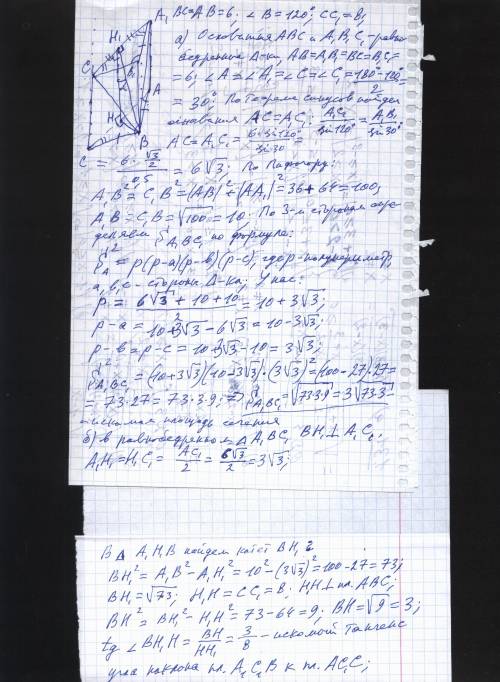 A₁ BC=AB=6; ∠B=120°; CC₁=8;
а) Основания ABC и A₁B₁C₁ - равно-
бедренные Δ-ки, AB=A₁B₁=BC=B₁C₁=
=6; ∠A=∠A₁=∠C=∠C₁=(180°-120°)/2
= 30°; По теореме синусов найдем
основания AC=A₁C₁: A₁C₁/sin120° = A₁B₁/sin30°
AC=A₁C₁= 6·sin120°/sin30° =
= 6·(√3/2)/0,5 = 6√3; По Пифагору:
A₁B²=C₁B²=(AB)²+(AA₁)²=36+64=100;
A₁B=C₁B=√100=10. По 3-м сторонам опре-
деляем S A₁BC₁ по формуле:
S²Δ = p(p-a)(p-b)(p-c), где p-полупериметр,
a, b, c - стороны Δ-ка; У нас:
p = (6√3+10+10)/2 = 10+3√3;
p-a = 10+3√3-6√3=10-3√3;
p-b=p-c=10+3√3-10=3√3;
S²A₁BC₁=(10+3√3)(10-3√3)·(3√3)²=(100-27)·27=
=73·27=73·3·9; ⇒ S A₁BC₁=√73·3·9=3√73·3-
искомая площадь сечения
б) в равнобедренном Δ A₁BC₁ BH₁⊥A₁C₁,
A₁H₁=H₁C₁= A₁C₁/2 = 6√3/2 =3√3;
В Δ A₁H₁B найдем катет BH₁:
BH₁²=A₁B²-A₁H₁²=10²-(3√3)²=100-27=73;
BH₁=√73; H₁H=CC₁=8; HH₁⊥пл. ABC;
BH²=BH₁²-H₁H²=73-64=9; BH=√9=3;
tg ∠BH₁H= BH/HH₁ = 3/8 - искомый тангенс
угла наклона пл. A₁C₁B к пл. ACC₁;
C₁
H₁
B₁
A
H
B
C